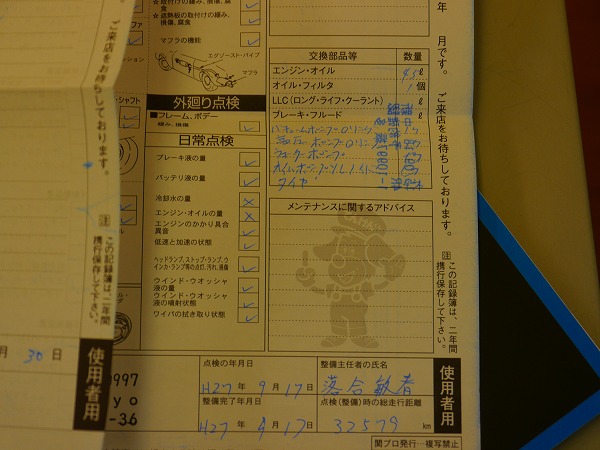 ★ 取付けの緩み、損傷、腐食
★ 遮熱板の取付けの緩み、損傷、腐食
マフラの機能
エグゾースト・パイプ
マフラ
外廻り点検
■フレーム、ボデー
緩み、損傷
日常点検
ブレーキ液の量
バッテリ液の量
冷却水の量
エンジン・オイルの量
エンジンのかかり具合
異音
低速と加速の状態
ヘッドランプ、ストップ・ランプ、ウインカ・ランプ等の点灯、汚れ、損傷
ウインド・ウオッシャ液の量
ウインド・ウオッシャ液の噴射状態
ワイパの拭き取り状態
交換部品等 数量
エンジン・オイル 4.5 ℓ
オイル・フィルタ 1 個
LLC(ロング・ライフ・クーラント) ℓ
ブレーキ・フルード ℓ
タイヤ
メンテナンスに関するアドバイス
年 月です。 ご来店をお待ちしております。
注 この記録簿は、二年間携行保存して下さい。
使用者用
点検の年月日
H27 年 9 月 17 日
整備完了年月日
H27 年 9 月 17 日
整備主任者の氏名
落合敏春
点検(整備)時の総走行距離
32579 km
関プロ発行…複写禁止
ご来店をお待ちしております。
注 この記録簿は、二年間携行保存して下さい。
使用者用
月 30 日
0997
yo
-36
・シャフト